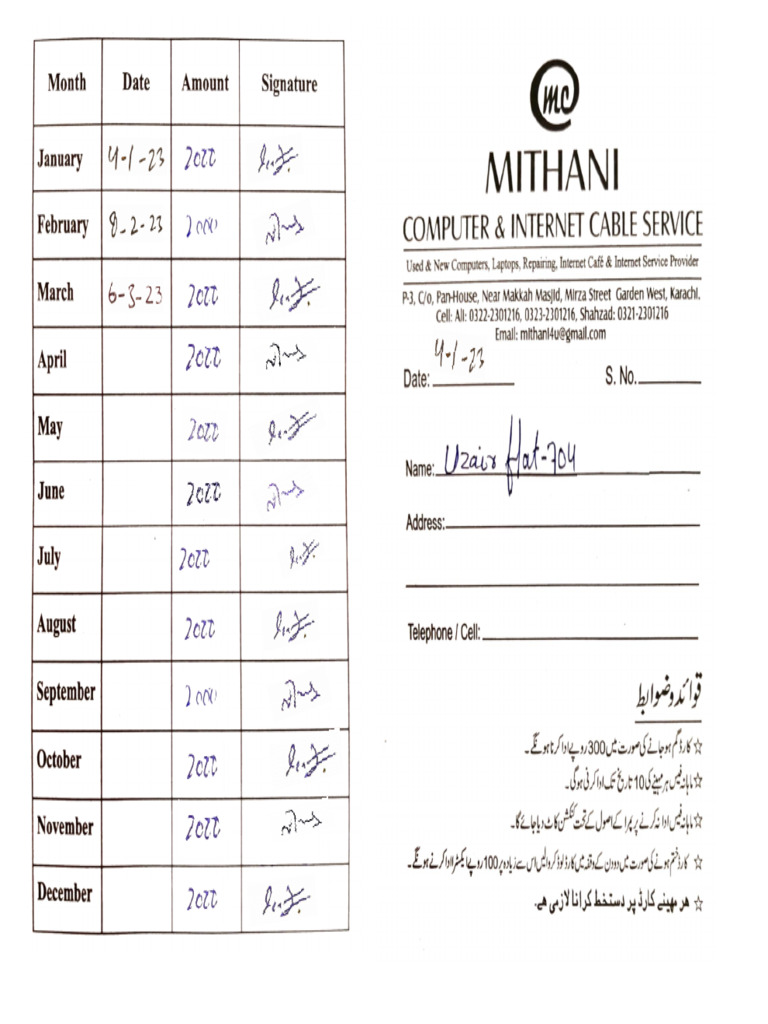 Month Date Amount Signature
January 4-1-23 2000
February 8-2-23 2000
March 6-3-23 2000
April 2000
May 2000
June 2000
July 2000
August 2000
September 2000
October 2000
November 2000
December 2000
mc
MITHANI
COMPUTER & INTERNET CABLE SERVICE
Used & New Computers, Laptops, Repairing, Internet Café & Internet Service Provider
P-3, C/o, Pan-House, Near Makkah Masjid, Mirza Street Garden West, Karachi.
Cell: Ali: 0322-2301216, 0323-2301216, Shahzad: 0321-2301216
Email: mithani4u@gmail.com
Date: 4-1-23 S. No.
Name: Uzair flat-704
Address:
Telephone / Cell:
قوائد وضوابط
☆ کارڈ گم ہو جانے کی صورت میں 300 روپے ادا کرنا ہونگے۔
☆ ماہانہ فیس ہر مہینے کی 10 تاریخ تک ادا کرنی ہوگی۔
☆ ماہانہ فیس ادا نہ کرنے پر پیمرا کے اصول کے تحت کنکشن کاٹ دیا جائے گا۔
☆ کارڈ ختم ہونے کی صورت میں دو دن کے وقفہ میں کارڈ لوڈ کروالیں اس سے زیادہ پر 100 روپے ایکسٹرا ادا کرنے ہونگے۔
☆ ہر مہینے کارڈ پر دستخط کرانا لازمی ہے۔